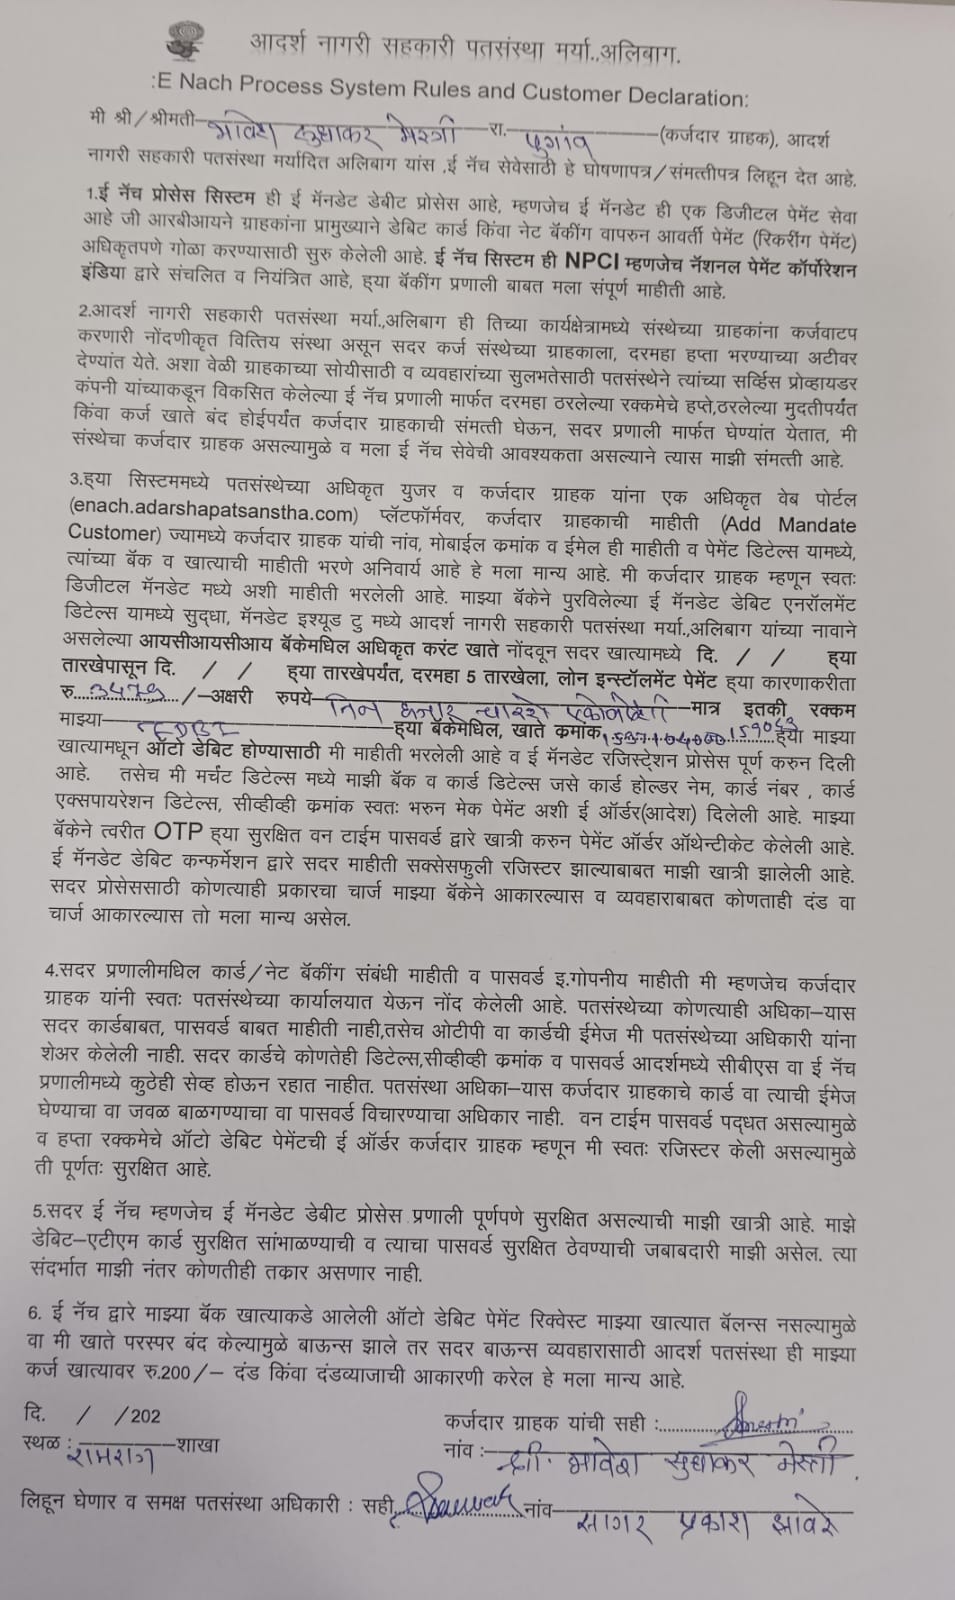 आदर्श नागरी सहकारी पतसंस्था मर्या.,अलिबाग.
:E Nach Process System Rules and Customer Declaration:
मी श्री/श्रीमती भावेश सुधाकर मेस्त्री रा. (कर्जदार ग्राहक), आदर्श
नागरी सहकारी पतसंस्था मर्यादित अलिबाग यांस ,ई नॅच सेवेसाठी हे घोषणापत्र/संमत्तीपत्र लिहून देत आहे.
1.ई नॅच प्रोसेस सिस्टिम ही ई मॅनडेट डेबीट प्रोसेस आहे, म्हणजेच ई मॅनडेट ही एक डिजीटल पेमेंट सेवा
आहे जी आरबीआयने ग्राहकांना प्रामुख्याने डेबिट कार्ड किंवा नेट बॅकींग वापरुन आवर्ती पेमेंट (रिकरींग पेमेंट)
अधिकृतपणे गोळा करण्यासाठी सुरु केलेली आहे. ई नॅच सिस्टम ही NPCI म्हणजेच नॅशनल पेमेंट कॉर्पोरेशन
इंडिया द्वारे संचलित व नियंत्रित आहे, ह्या बॅकींग प्रणाली बाबत मला संपूर्ण माहीती आहे.
2.आदर्श नागरी सहकारी पतसंस्था मर्या.,अलिबाग ही तिच्या कार्यक्षेत्रामध्ये संस्थेच्या ग्राहकांना कर्जवाटप
करणारी नोंदणीकृत वित्तिय संस्था असून सदर कर्ज संस्थेच्या ग्राहकाला, दरमहा हप्ता भरण्याच्या अटीवर
देण्यांत येते. अशा वेळी ग्राहकाच्या सोयीसाठी व व्यवहारांच्या सुलभतेसाठी पतसंस्थेने त्यांच्या सर्व्हिस प्रोव्हायडर
कंपनी यांच्याकडून विकसित केलेल्या ई नॅच प्रणाली मार्फत दरमहा ठरलेल्या रक्कमेचे हप्ते,ठरलेल्या मुदतीपर्यंत
किंवा कर्ज खाते बंद होईपर्यंत कर्जदार ग्राहकाची संमत्ती घेऊन, सदर प्रणाली मार्फत घेण्यांत येतात, मी
संस्थेचा कर्जदार ग्राहक असल्यामुळे व मला ई नॅच सेवेची आवश्यकता असल्याने त्यास माझी संमत्ती आहे.
3.ह्या सिस्टममध्ये पतसंस्थेच्या अधिकृत युजर व कर्जदार ग्राहक यांना एक अधिकृत वेब पोर्टल
(enach.adarshapatsanstha.com) प्लॅटफॉर्मवर, कर्जदार ग्राहकाची माहीती (Add Mandate
Customer) ज्यामध्ये कर्जदार ग्राहक यांची नांव, मोबाईल क्रमांक व ईमेल ही माहीती व पेमेंट डिटेल्स यामध्ये,
त्यांच्या बॅक व खात्याची माहीती भरणे अनिवार्य आहे हे मला मान्य आहे. मी कर्जदार ग्राहक म्हणून स्वतः
डिजीटल मॅनडेट मध्ये अशी माहीती भरलेली आहे. माझ्या बॅकेने पुरविलेल्या ई मॅनडेट डेबिट एनरॉलमेंट
डिटेल्स यामध्ये सुद्धा, मॅनडेट इश्यूड टु मध्ये आदर्श नागरी सहकारी पतसंस्था मर्या.,अलिबाग यांच्या नावाने
असलेल्या आयसीआयसीआय बॅकेमधिल अधिकृत करंट खाते नोंदवून सदर खात्यामध्ये दि. / / ह्या
तारखेपासून दि. / / ह्या तारखेपर्यंत, दरमहा 5 तारखेला, लोन इन्स्टॉलमेंट पेमेंट ह्या कारणाकरीता
रु 3479 /–अक्षरी रुपये तिन हजार चारशे एकोनऐंशी मात्र इतकी रक्कम
माझ्या IDBI ह्या बॅकेमधिल, खाते क्रमांक ह्या माझ्या
खात्यामधून ऑटो डेबिट होण्यासाठी मी माहीती भरलेली आहे व ई मॅनडेट रजिस्ट्रेशन प्रोसेस पूर्ण करुन दिली
आहे. तसेच मी मर्चंट डिटेल्स मध्ये माझी बॅक व कार्ड डिटेल्स जसे कार्ड होल्डर नेम, कार्ड नंबर , कार्ड
एक्सपायरेशन डिटेल्स, सीव्हीव्ही क्रमांक स्वतः भरुन मेक पेमेंट अशी ई ऑर्डर(आदेश) दिलेली आहे. माझ्या
बॅकेने त्वरीत OTP ह्या सुरक्षित वन टाईम पासवर्ड द्वारे खात्री करुन पेमेंट ऑर्डर ऑथेन्टीकेट केलेली आहे.
ई मॅनडेट डेबिट कन्फर्मेशन द्वारे सदर माहीती सक्सेसफुली रजिस्टर झाल्याबाबत माझी खात्री झालेली आहे.
सदर प्रोसेससाठी कोणत्याही प्रकारचा चार्ज माझ्या बॅकेने आकारल्यास व व्यवहाराबाबत कोणताही दंड वा
चार्ज आकारल्यास तो मला मान्य असेल.
4.सदर प्रणालीमधिल कार्ड/नेट बॅकींग संबंधी माहीती व पासवर्ड इ.गोपनीय माहीती मी म्हणजेच कर्जदार
ग्राहक यांनी स्वतः पतसंस्थेच्या कार्यालयात येऊन नोंद केलेली आहे. पतसंस्थेच्या कोणत्याही अधिका–यास
सदर कार्डबाबत, पासवर्ड बाबत माहीती नाही,तसेच ओटीपी वा कार्डची ईमेज मी पतसंस्थेच्या अधिकारी यांना
शेअर केलेली नाही. सदर कार्डचे कोणतेही डिटेल्स,सीव्हीव्ही क्रमांक व पासवर्ड आदर्शमध्ये सीबीएस वा ई नॅच
प्रणालीमध्ये कुठेही सेव्ह होऊन रहात नाहीत. पतसंस्था अधिका–यास कर्जदार ग्राहकाचे कार्ड वा त्याची ईमेज
घेण्याचा वा जवळ बाळगण्याचा वा पासवर्ड विचारण्याचा अधिकार नाही. वन टाईम पासवर्ड पद्धत असल्यामुळे
व हप्ता रक्कमेचे ऑटो डेबिट पेमेंटची ई ऑर्डर कर्जदार ग्राहक म्हणून मी स्वतः रजिस्टर केली असल्यामुळे
ती पूर्णतः सुरक्षित आहे.
5.सदर ई नॅच म्हणजेच ई मॅनडेट डेबीट प्रोसेस प्रणाली पूर्णपणे सुरक्षित असल्याची माझी खात्री आहे. माझे
डेबिट–एटीएम कार्ड सुरक्षित सांभाळण्याची व त्याचा पासवर्ड सुरक्षित ठेवण्याची जबाबदारी माझी असेल. त्या
संदर्भात माझी नंतर कोणतीही तक्रार असणार नाही.
6. ई नॅच द्वारे माझ्या बॅक खात्याकडे आलेली ऑटो डेबिट पेमेंट रिक्वेस्ट माझ्या खात्यात बॅलन्स नसल्यामुळे
वा मी खाते परस्पर बंद केल्यामुळे बाऊन्स झाले तर सदर बाऊन्स व्यवहारासाठी आदर्श पतसंस्था ही माझ्या
कर्ज खात्यावर रु.200/– दंड किंवा दंडव्याजाची आकारणी करेल हे मला मान्य आहे.
दि. / /202
कर्जदार ग्राहक यांची सही :
स्थळ : रामराज शाखा
नांव : श्री. भावेश सुधाकर मेस्त्री.
लिहून घेणार व समक्ष पतसंस्था अधिकारी : सही नांव सागर प्रकाश झावरे